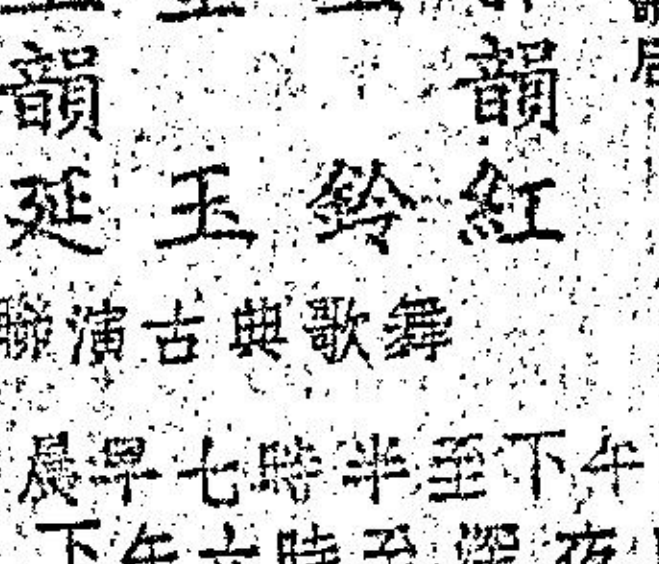 韻 韻
延 玉 鈴 紅
聯演古典歌舞
晨早七時半至下午
下午六時至深夜